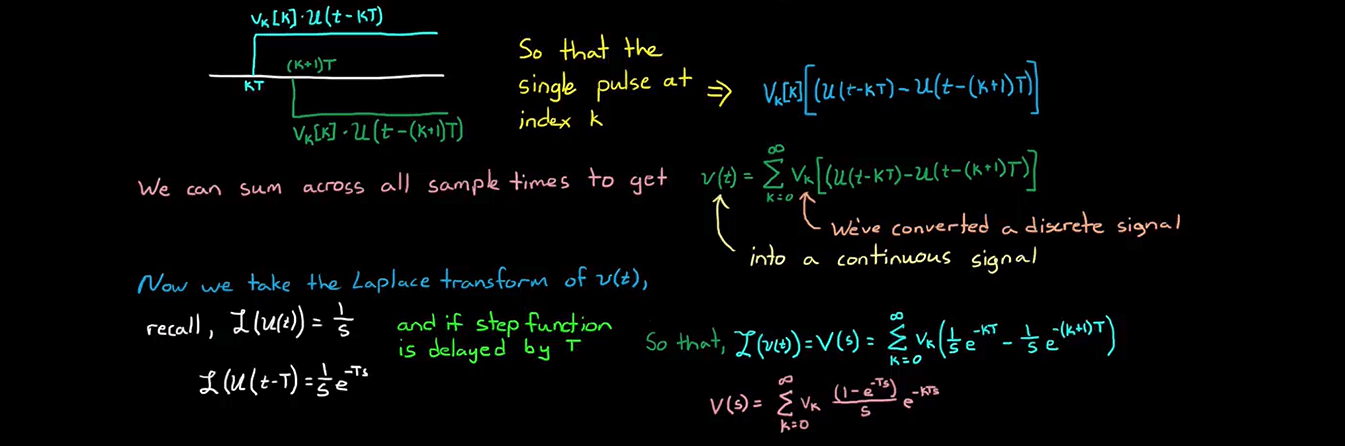 V_K[K]·U(t-KT)
(K+1)T
KT
V_K[K]·U(t-(K+1)T)
So that the
single pulse at
index k
⇒ V_K[K][(U(t-KT)-U(t-(K+1)T)]
We can sum across all sample times to get
v(t) = ∑_{K=0}^{∞} V_K[(U(t-KT)-U(t-(K+1)T)]
We've converted a discrete signal
into a continuous signal
Now we take the Laplace transform of v(t),
recall, ℒ(U(t)) = 1/s
and if step function
is delayed by T
ℒ(U(t-T) = 1/s e^{-Ts}
So that, ℒ(v(t)) = V(s) = ∑_{K=0}^{∞} V_K(1/s e^{-KT} - 1/s e^{-(K+1)T})
V(s) = ∑_{K=0}^{∞} V_K (1-e^{-Ts})/s e^{-KTs}